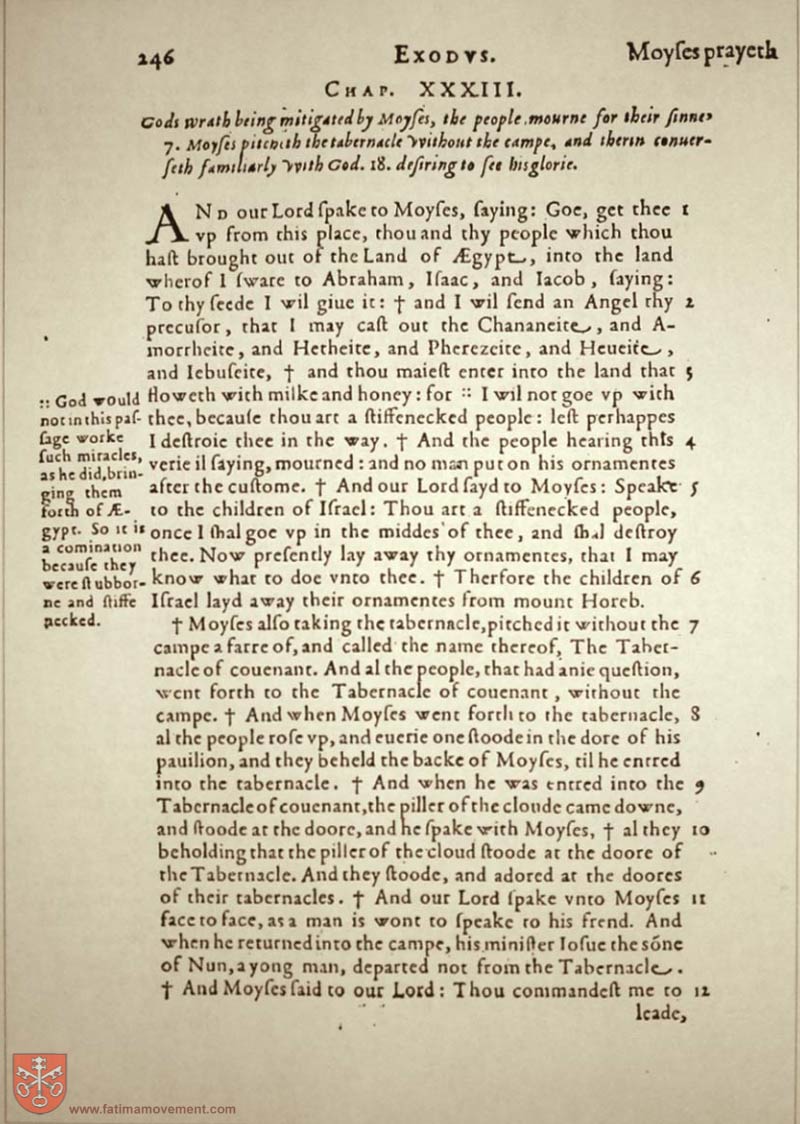 246 EXODVS. Moyſes prayeth
CHAP. XXXIII.
Gods wrath being mitigated by Moyſes, the people mourne for their ſinne
7. Moyſes pitcheth the tabernacle without the campe, and therin conuer-
ſeth familiarly with God. 18. deſiring to ſee his glorie.
AND our Lord ſpake to Moyſes, ſaying: Goe, get thee 1
vp from this place, thou and thy people which thou
haſt brought out of the Land of Ægypt, into the land
wherof I ſware to Abraham, Iſaac, and Iacob, ſaying:
To thy ſeede I wil giue it: † and I wil ſend an Angel thy 2
precuſor, that I may caſt out the Chananeite, and A-
morrheite, and Hetheite, and Pherezeite, and Heueite,
and Iebuſeite, † and thou maieſt enter into the land that 3
floweth with milke and honey: for :: I wil not goe vp with
thee, becauſe thou art a ſtiffenecked people: leſt perhappes
I deſtroie thee in the way. † And the people hearing this 4
verie il ſaying, mourned: and no man put on his ornamentes
after the cuſtome. † And our Lord ſayd to Moyſes: Speake 5
to the children of Iſrael: Thou art a ſtiffenecked people,
once I ſhal goe vp in the middes of thee, and ſhal deſtroy
thee. Now preſently lay away thy ornamentes, that I may
know what to doe vnto thee. † Therfore the children of 6
Iſrael layd away their ornamentes from mount Horeb.
:: God would
not in this paſ-
ſage worke
ſuch miracles,
as he did, brin-
ging them
forth of Æ-
gypt. So it is
a comination
becauſe they
were ſtubbor-
ne and ſtiffe
necked.
† Moyſes alſo taking the tabernacle, pitched it without the 7
campe a farre of, and called the name thereof, The Taber-
nacle of couenant. And al the people, that had anie queſtion,
went forth to the Tabernacle of couenant, without the
campe. † And when Moyſes went forth to the tabernacle, 8
al the people roſe vp, and euerie one ſtoode in the dore of his
pauilion, and they beheld the backe of Moyſes, til he entred
into the tabernacle. † And when he was entred into the 9
Tabernacle of couenant, the piller of the cloude came downe,
and ſtoode at the doore, and he ſpake with Moyſes, † al they 10
beholding that the piller of the cloud ſtoode at the doore of
the Tabernacle. And they ſtoode, and adored at the doores
of their tabernacles. † And our Lord ſpake vnto Moyſes 11
face to face, as a man is wont to ſpeake to his frend. And
when he returned into the campe, his miniſter Ioſue the sōne
of Nun, a yong man, departed not from the Tabernacle.
† And Moyſes ſaid to our Lord: Thou commandeſt me to 12
leade,
www.fatimamovement.com